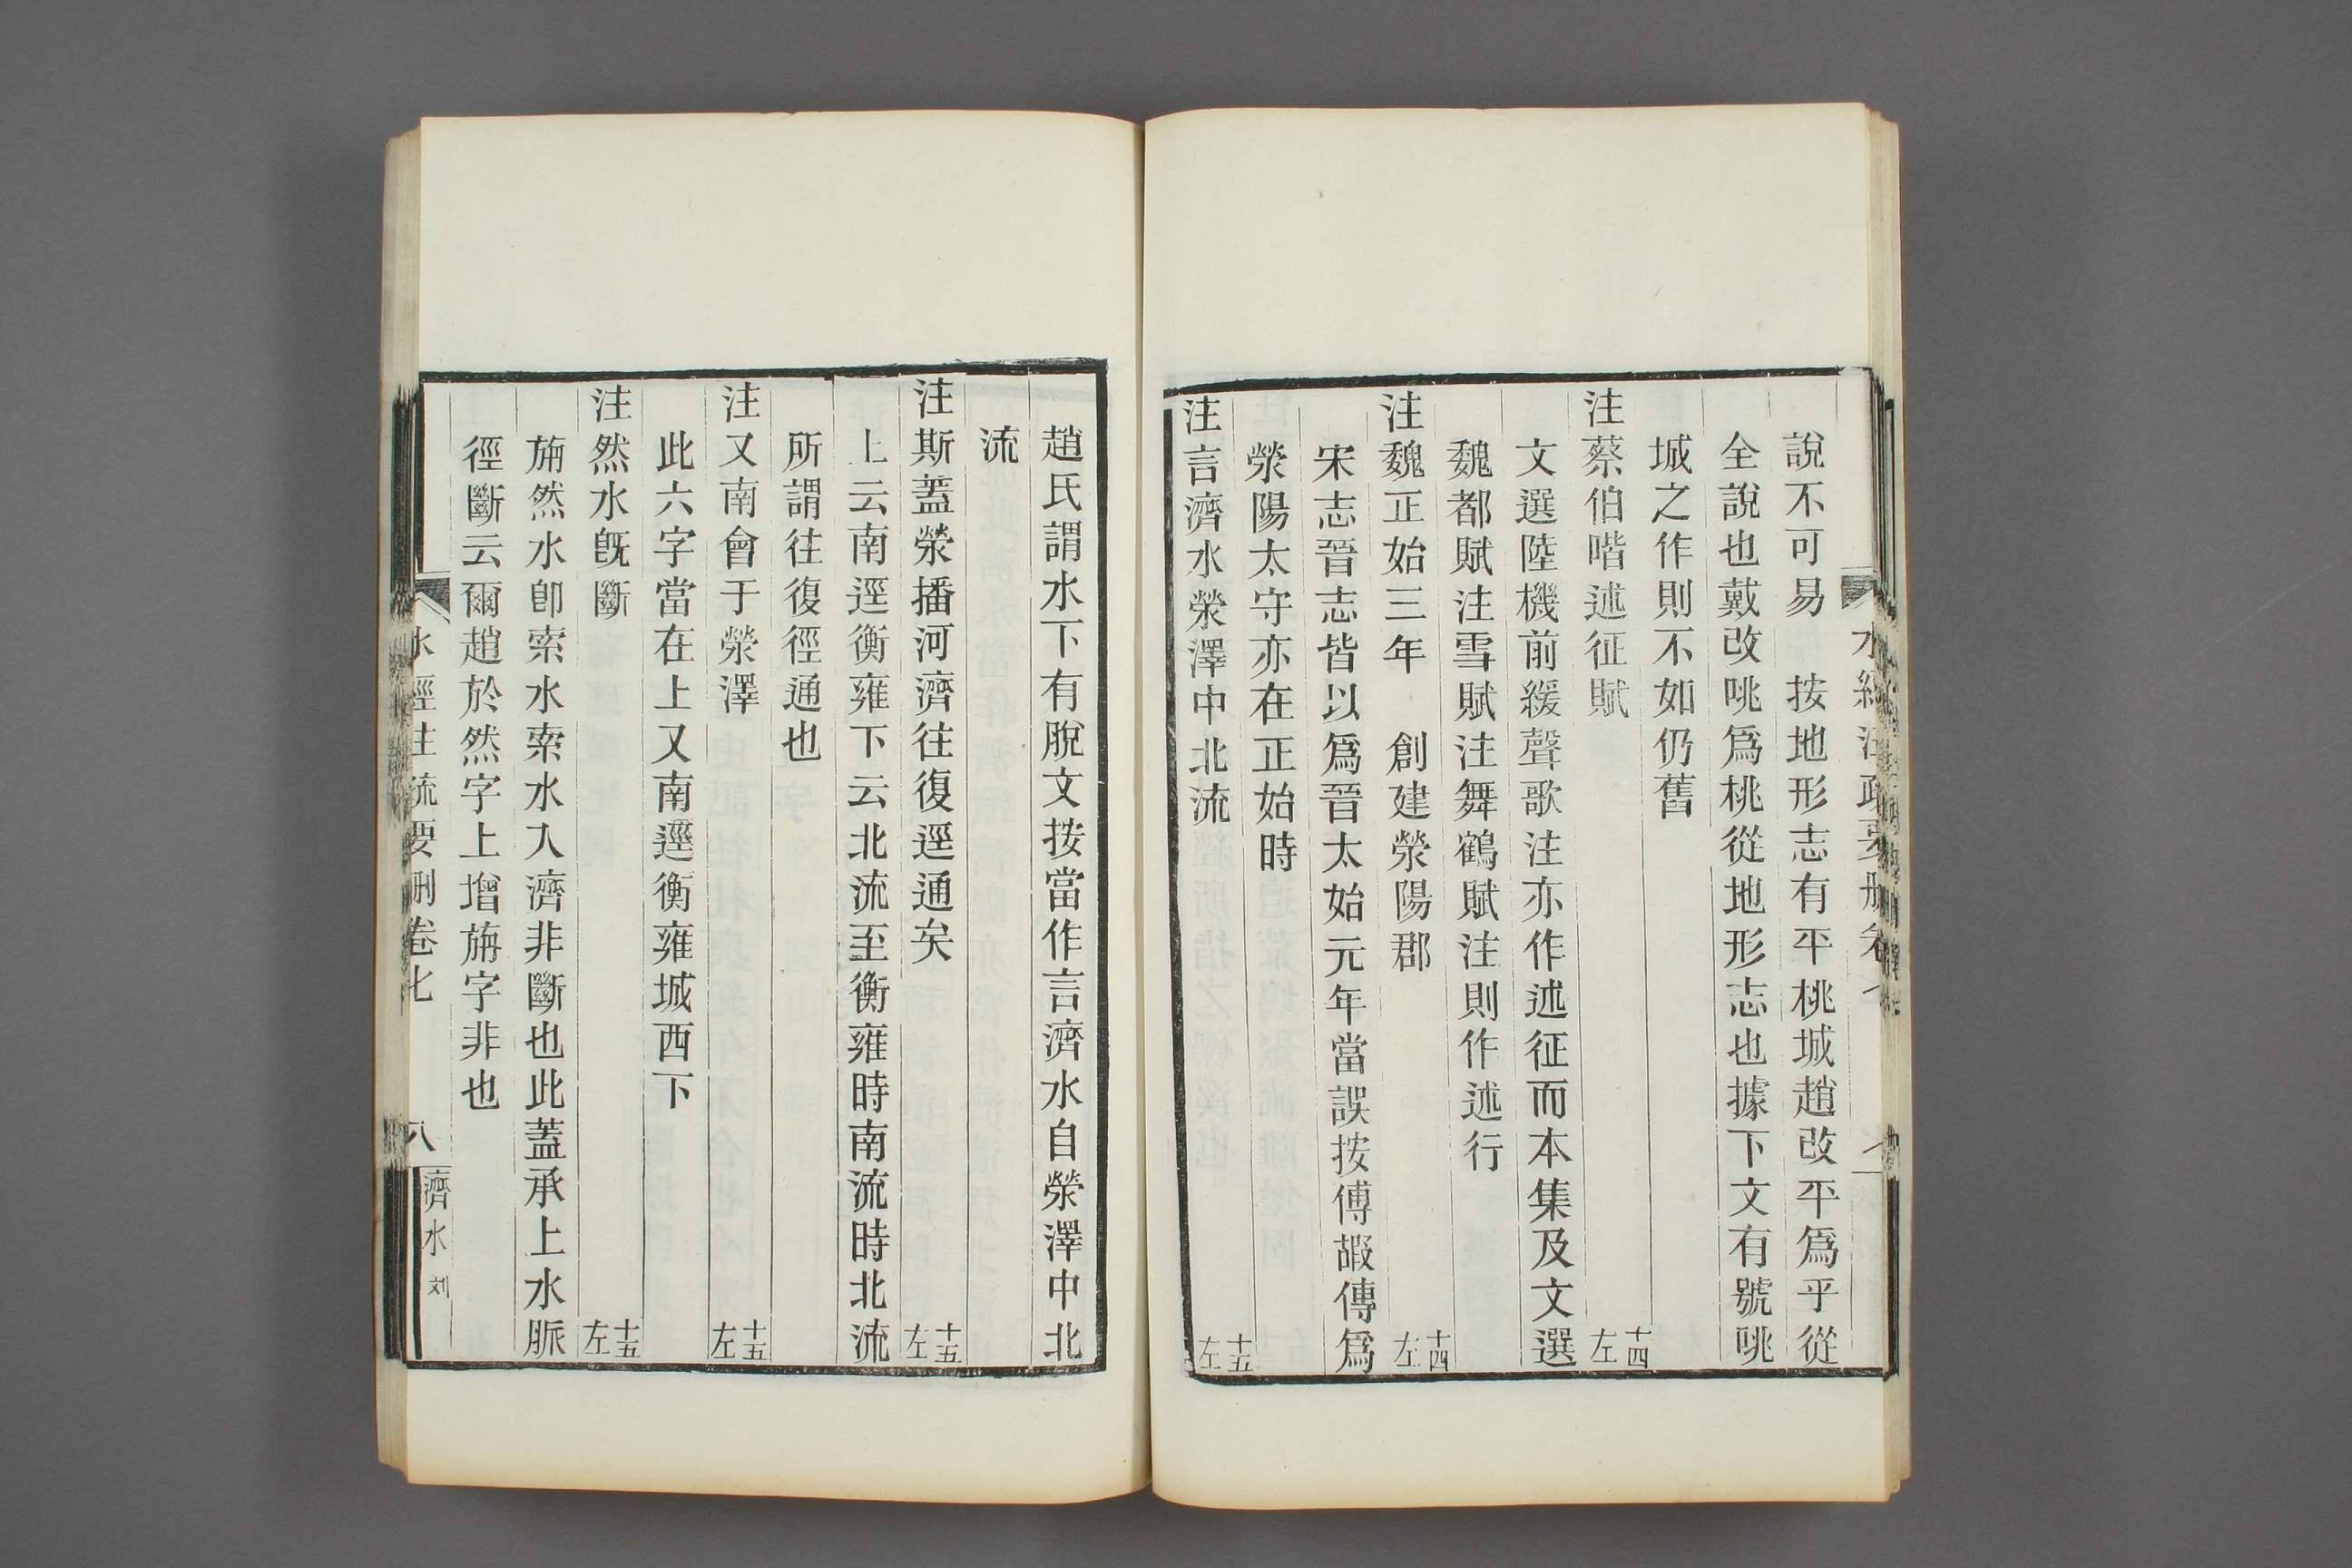 說不可易　按地形志有平桃城趙改平爲乎從
全說也戴改咷爲桃從地形志也據下文有號咷
城之作則不如仍舊
注蔡伯喈述征賦　十四左
文選陸機前緩聲歌注亦作述征而本集及文選
魏都賦注雪賦注舞鶴賦注則作述行
注魏正始三年　創建滎陽郡　十四左
宋志晉志皆以爲晉太始元年當誤按傅嘏傳爲
滎陽太守亦在正始時
注言濟水滎澤中北流　十五左
趙氏謂水下有脫文按當作言濟水自滎澤中北
流
注斯蓋滎播河濟往復逕通矣　十五左
上云南逕衡雍下云北流至衡雍時南流時北流
所謂往復徑通也
注又南會于滎澤　十五左
此六字當在上又南逕衡雍城西下
注然水旣斷　十五左
旃然水卽索水索水入濟非斷也此蓋承上水脈
徑斷云爾趙於然字上增旃字非也
水經注疏要刪卷七　八　濟水　刘